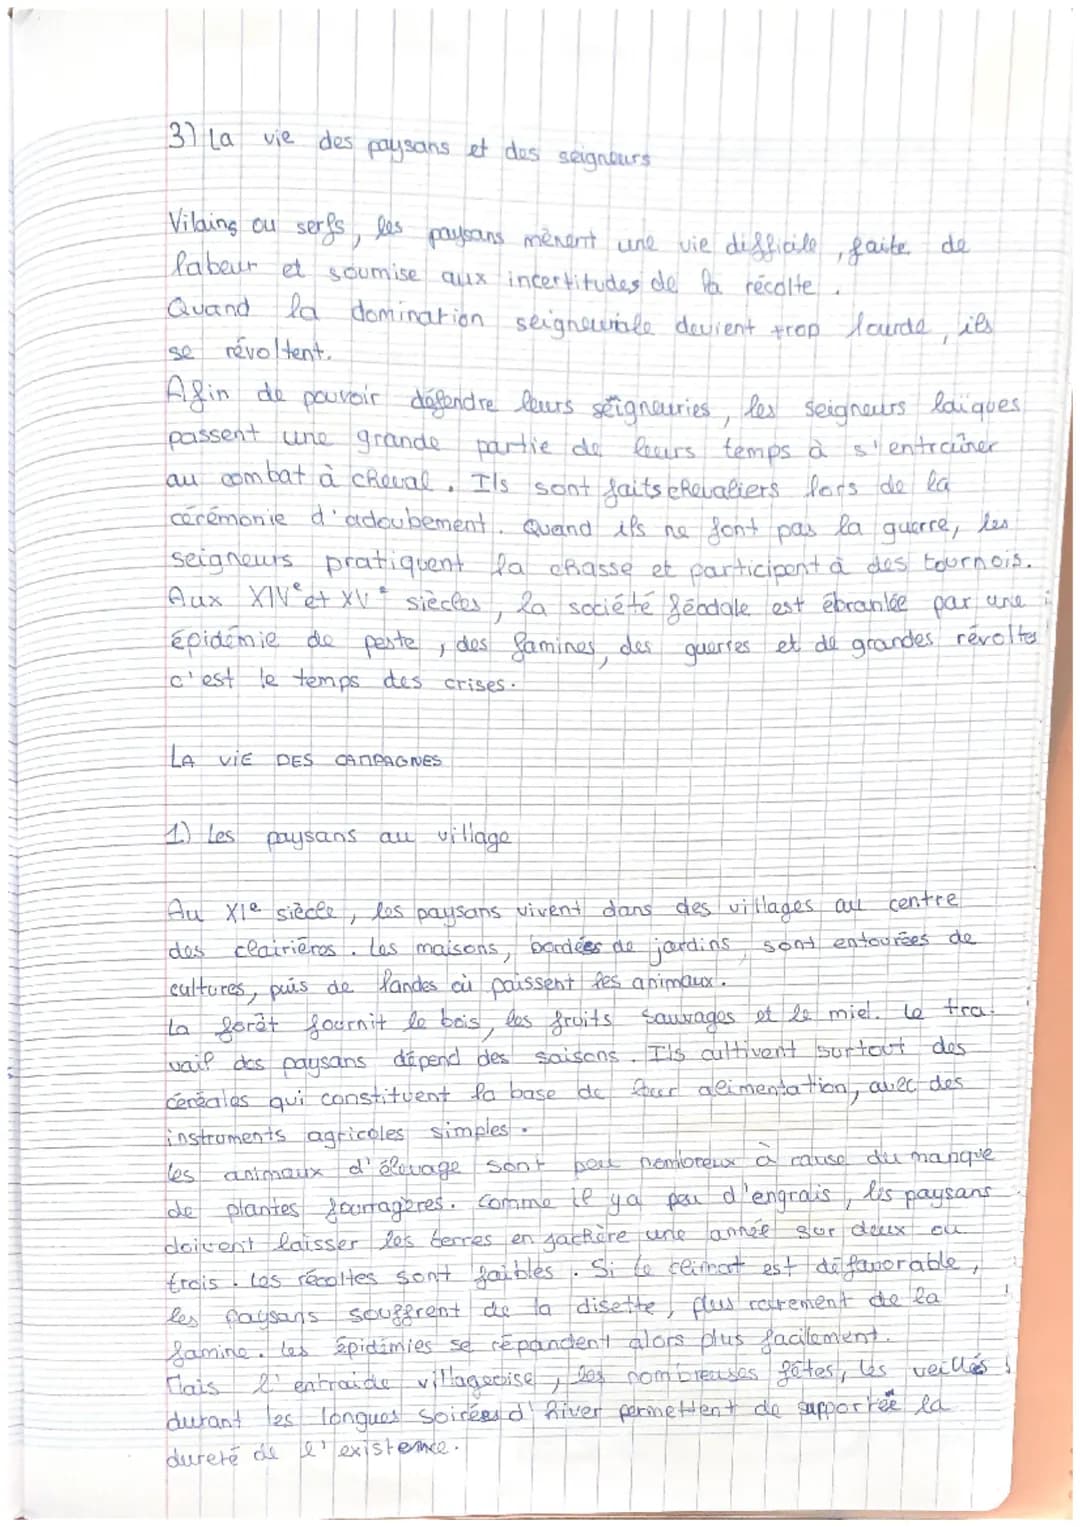 3) La vie des paysans et des seigneurs
Vilains ou serfs, les paysans mènent une vie difficile, faite de
labeur et soumise aux incertitudes de la récolte.
Quand la domination seigneuriale devient trop lourde, ils
se révoltent.
Afin de pouvoir défendre leurs seigneuries, les seigneurs laïques
passent une grande partie de leurs temps à s'entraîner
au combat à cheval. Ils sont faits chevaliers lors de la
cérémonie d'adoubement. Quand ils ne font pas la guerre, les
seigneurs pratiquent la chasse et participent à des tournois.
Aux XIVe et XVe siècles, la société féodale est ébranlée par une
épidémie de peste, des famines, des guerres et de grandes révoltes
c'est le temps des crises.
LA VIE DES CAMPAGNES
1) Les paysans au village
Au XIe siècle, les paysans vivent dans des villages au centre
des clairières. Les maisons, bordées de jardins, sont entourées de
cultures, puis de landes où paissent les animaux.
La forêt fournit le bois, les fruits sauvages et le miel. Le tra-
vail des paysans dépend des saisons. Ils cultivent surtout des
céréales qui constituent la base de leur alimentation, avec des
instruments agricoles simples.
Les animaux d'élevage sont peu nombreux à cause du manque
de plantes fourragères. Comme il y a peu d'engrais, les paysans
doivent laisser les terres en jachère une année sur deux ou
trois. Les récoltes sont faibles. Si le climat est défavorable,
les paysans souffrent de la disette, plus rarement de la
famine. Les épidimies se répandent alors plus facilement.
Mais l'entraide villageoise, les nombreuses fêtes, les veillés
durant les longues soirées d'hiver permettent de supportée la
dureté de l'existence.